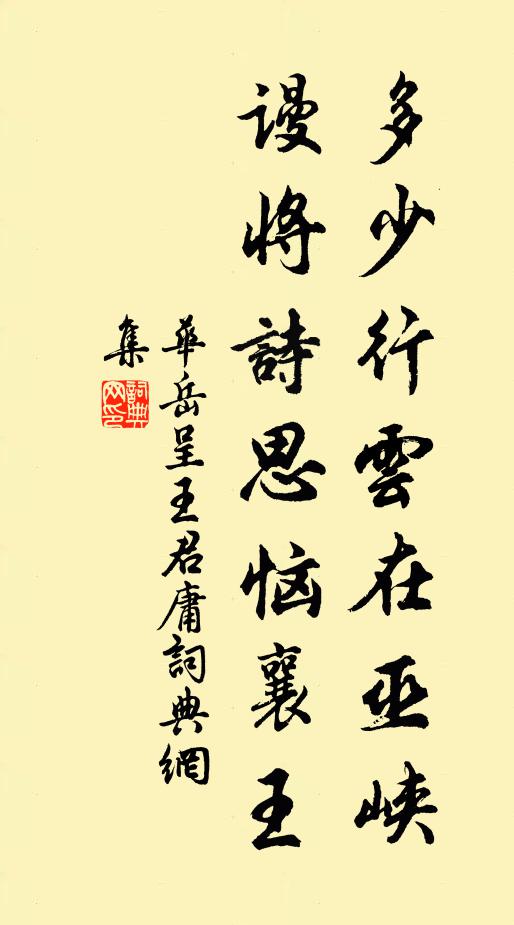 多少行雲在巫峽
谩將詩思恼襄王
華岳呈王君庸詞典網
集
詞典
网印